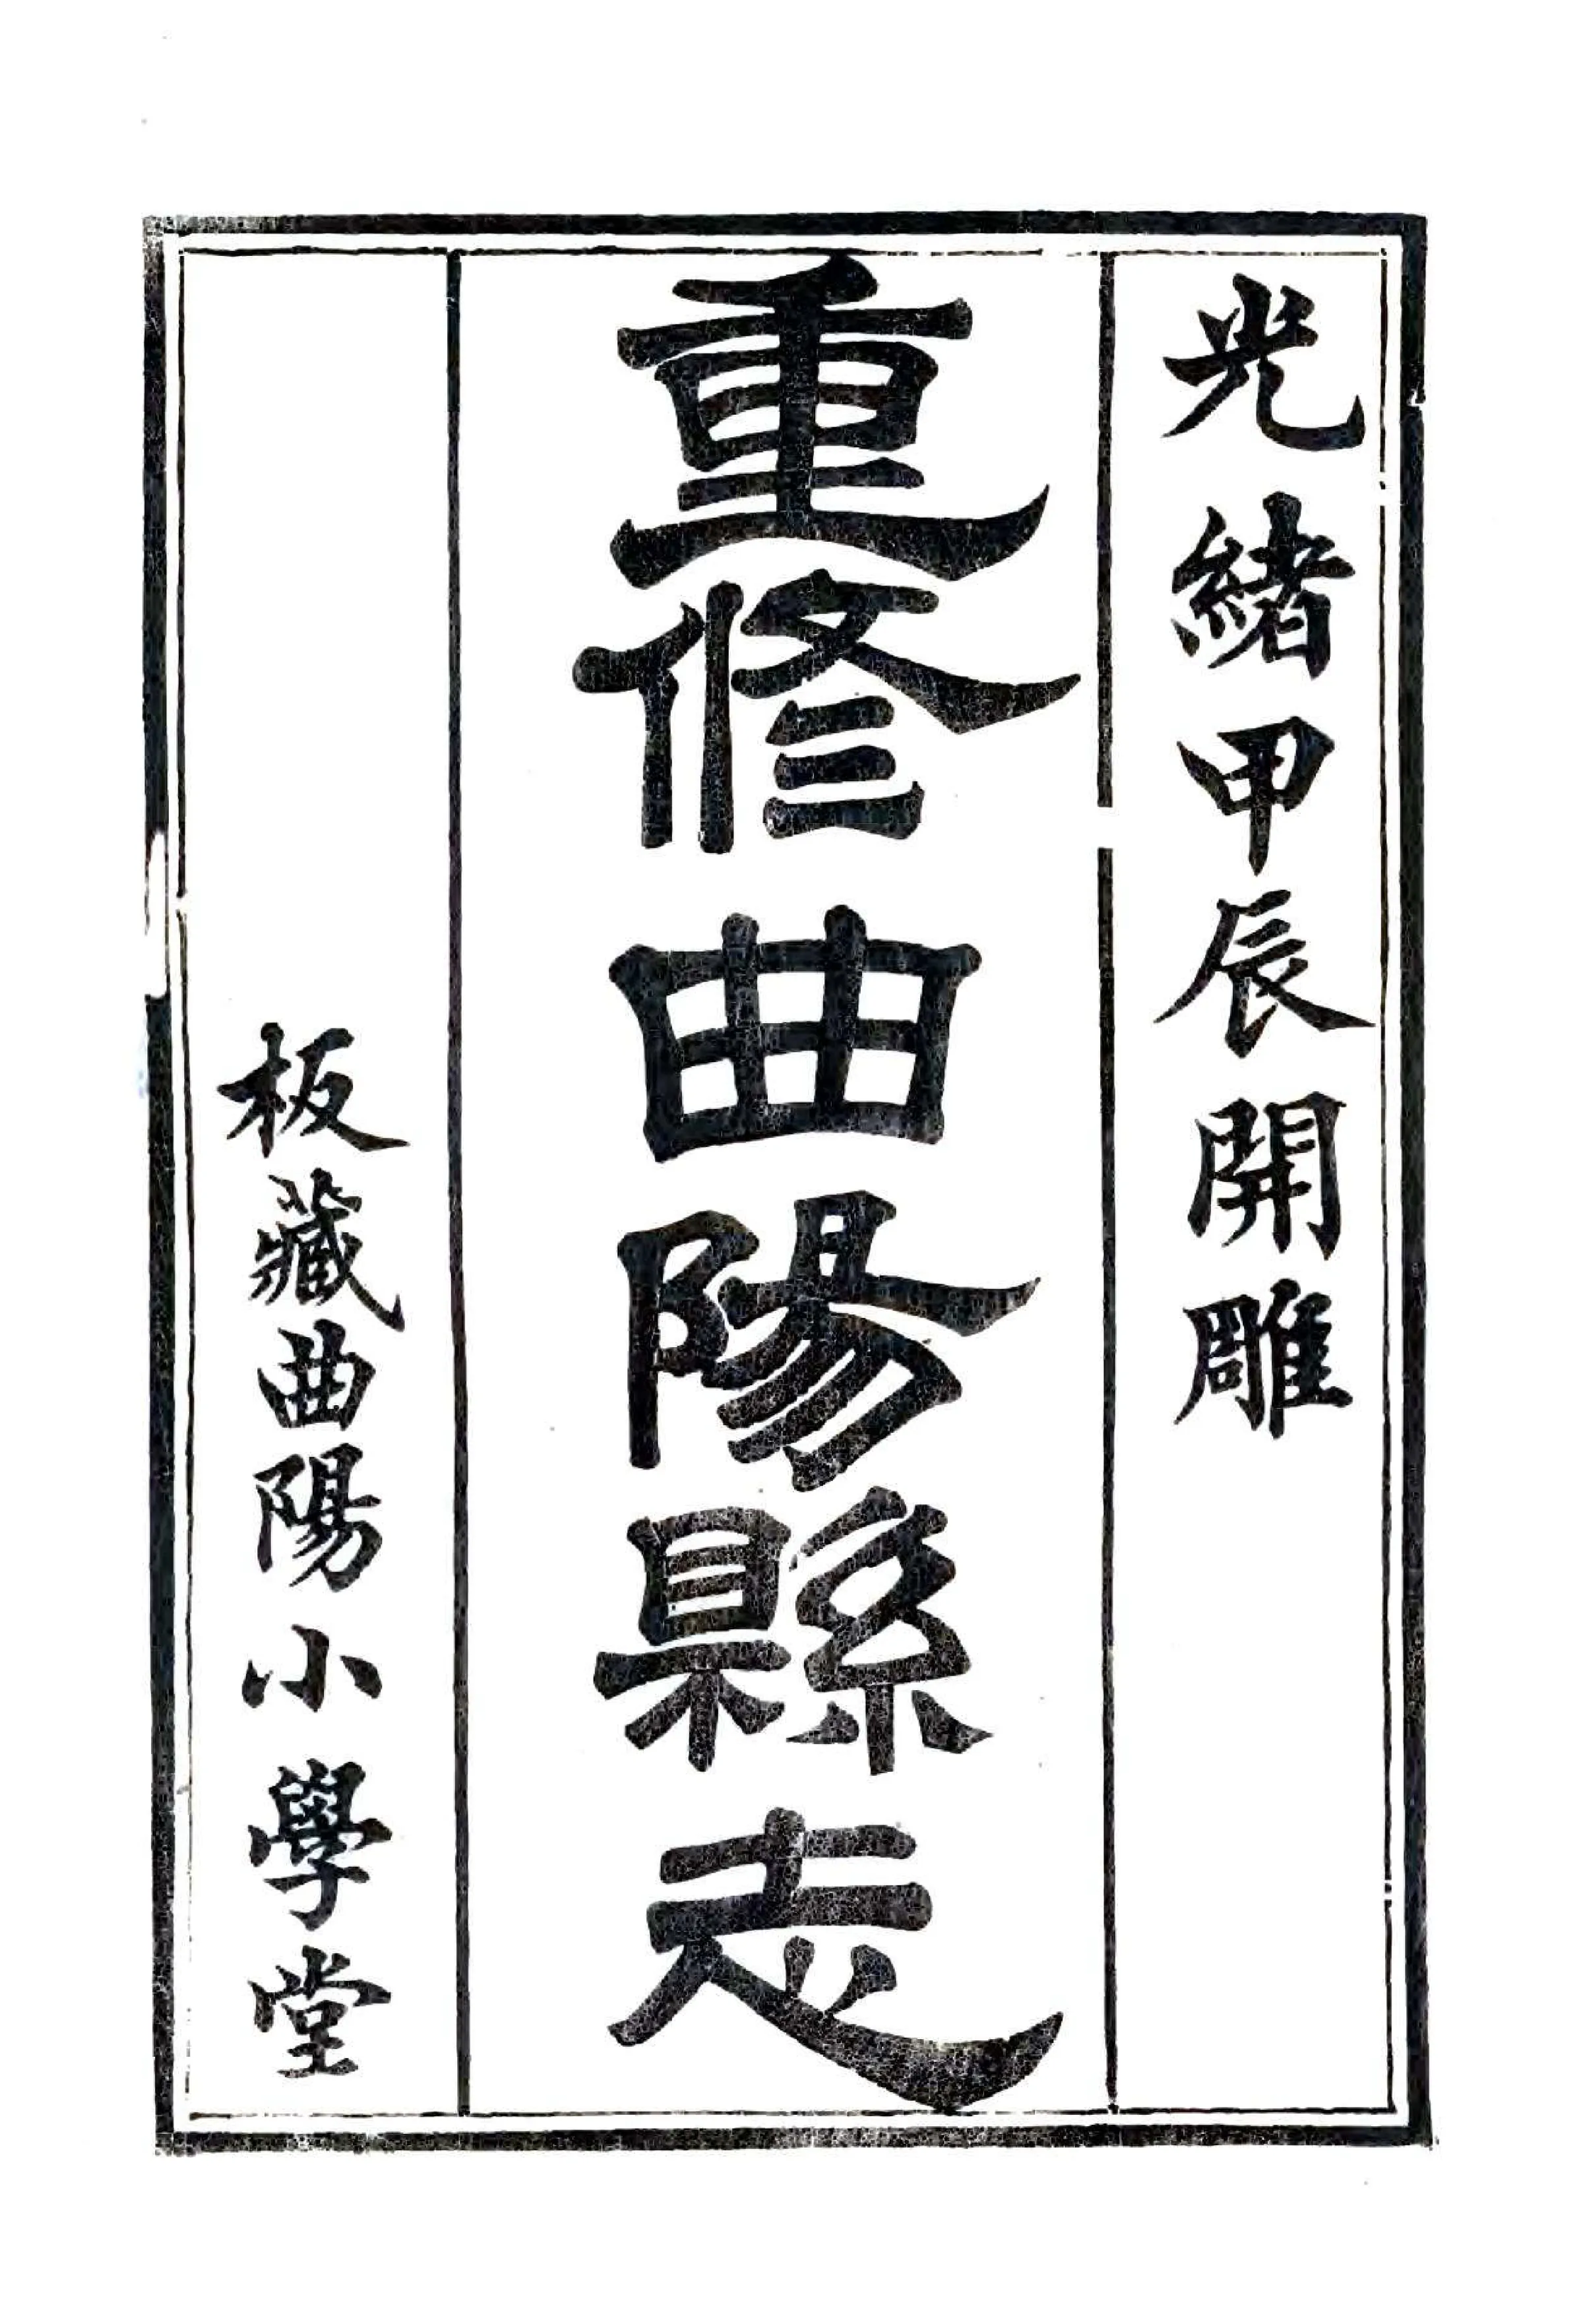 光緒甲辰開雕
重修曲陽縣志
板藏曲陽小學堂